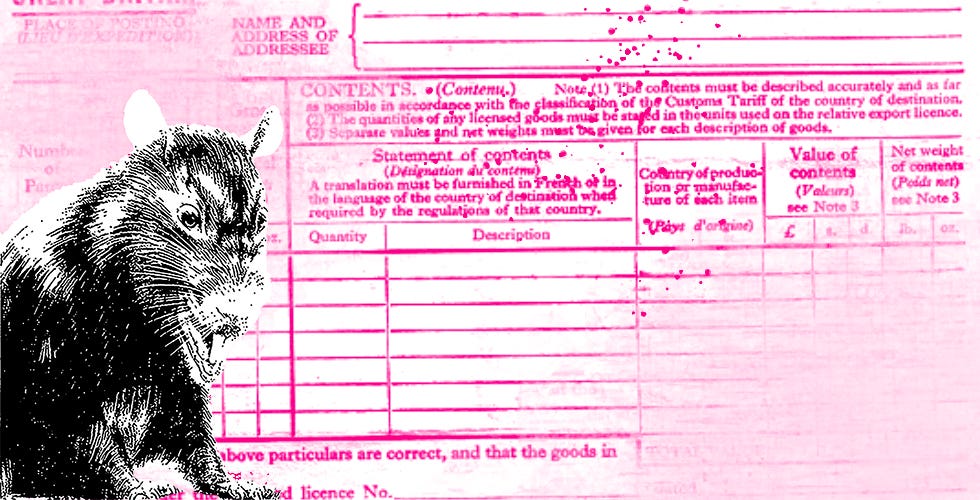 GREAT BRITAIN
PLACE OF POSTING
(LIEU D'EXPÉDITION)
NAME AND
ADDRESS OF
ADDRESSEE
CONTENTS. (Contenu.) Note (1) The contents must be described accurately and as far
as possible in accordance with the classification of the Customs Tariff of the country of destination.
(2) The quantities of any licensed goods must be stated in the units used on the relative export licence.
(3) Separate values and net weights must be given for each description of goods.
Statement of contents
(Désignation du contenu)
A translation must be furnished in French or in
the language of the country of destination when
required by the regulations of that country.
Quantity
Description
Country of produc-
tion or manufac-
ture of each item
(Pays d'origine)
Value of
contents
(Valeurs)
see Note 3
£ s. d.
Net weight
of contents
(Poids net)
see Note 3
lb. oz.
oz.
above particulars are correct, and that the goods in
TOTAL VALUE
licence No.